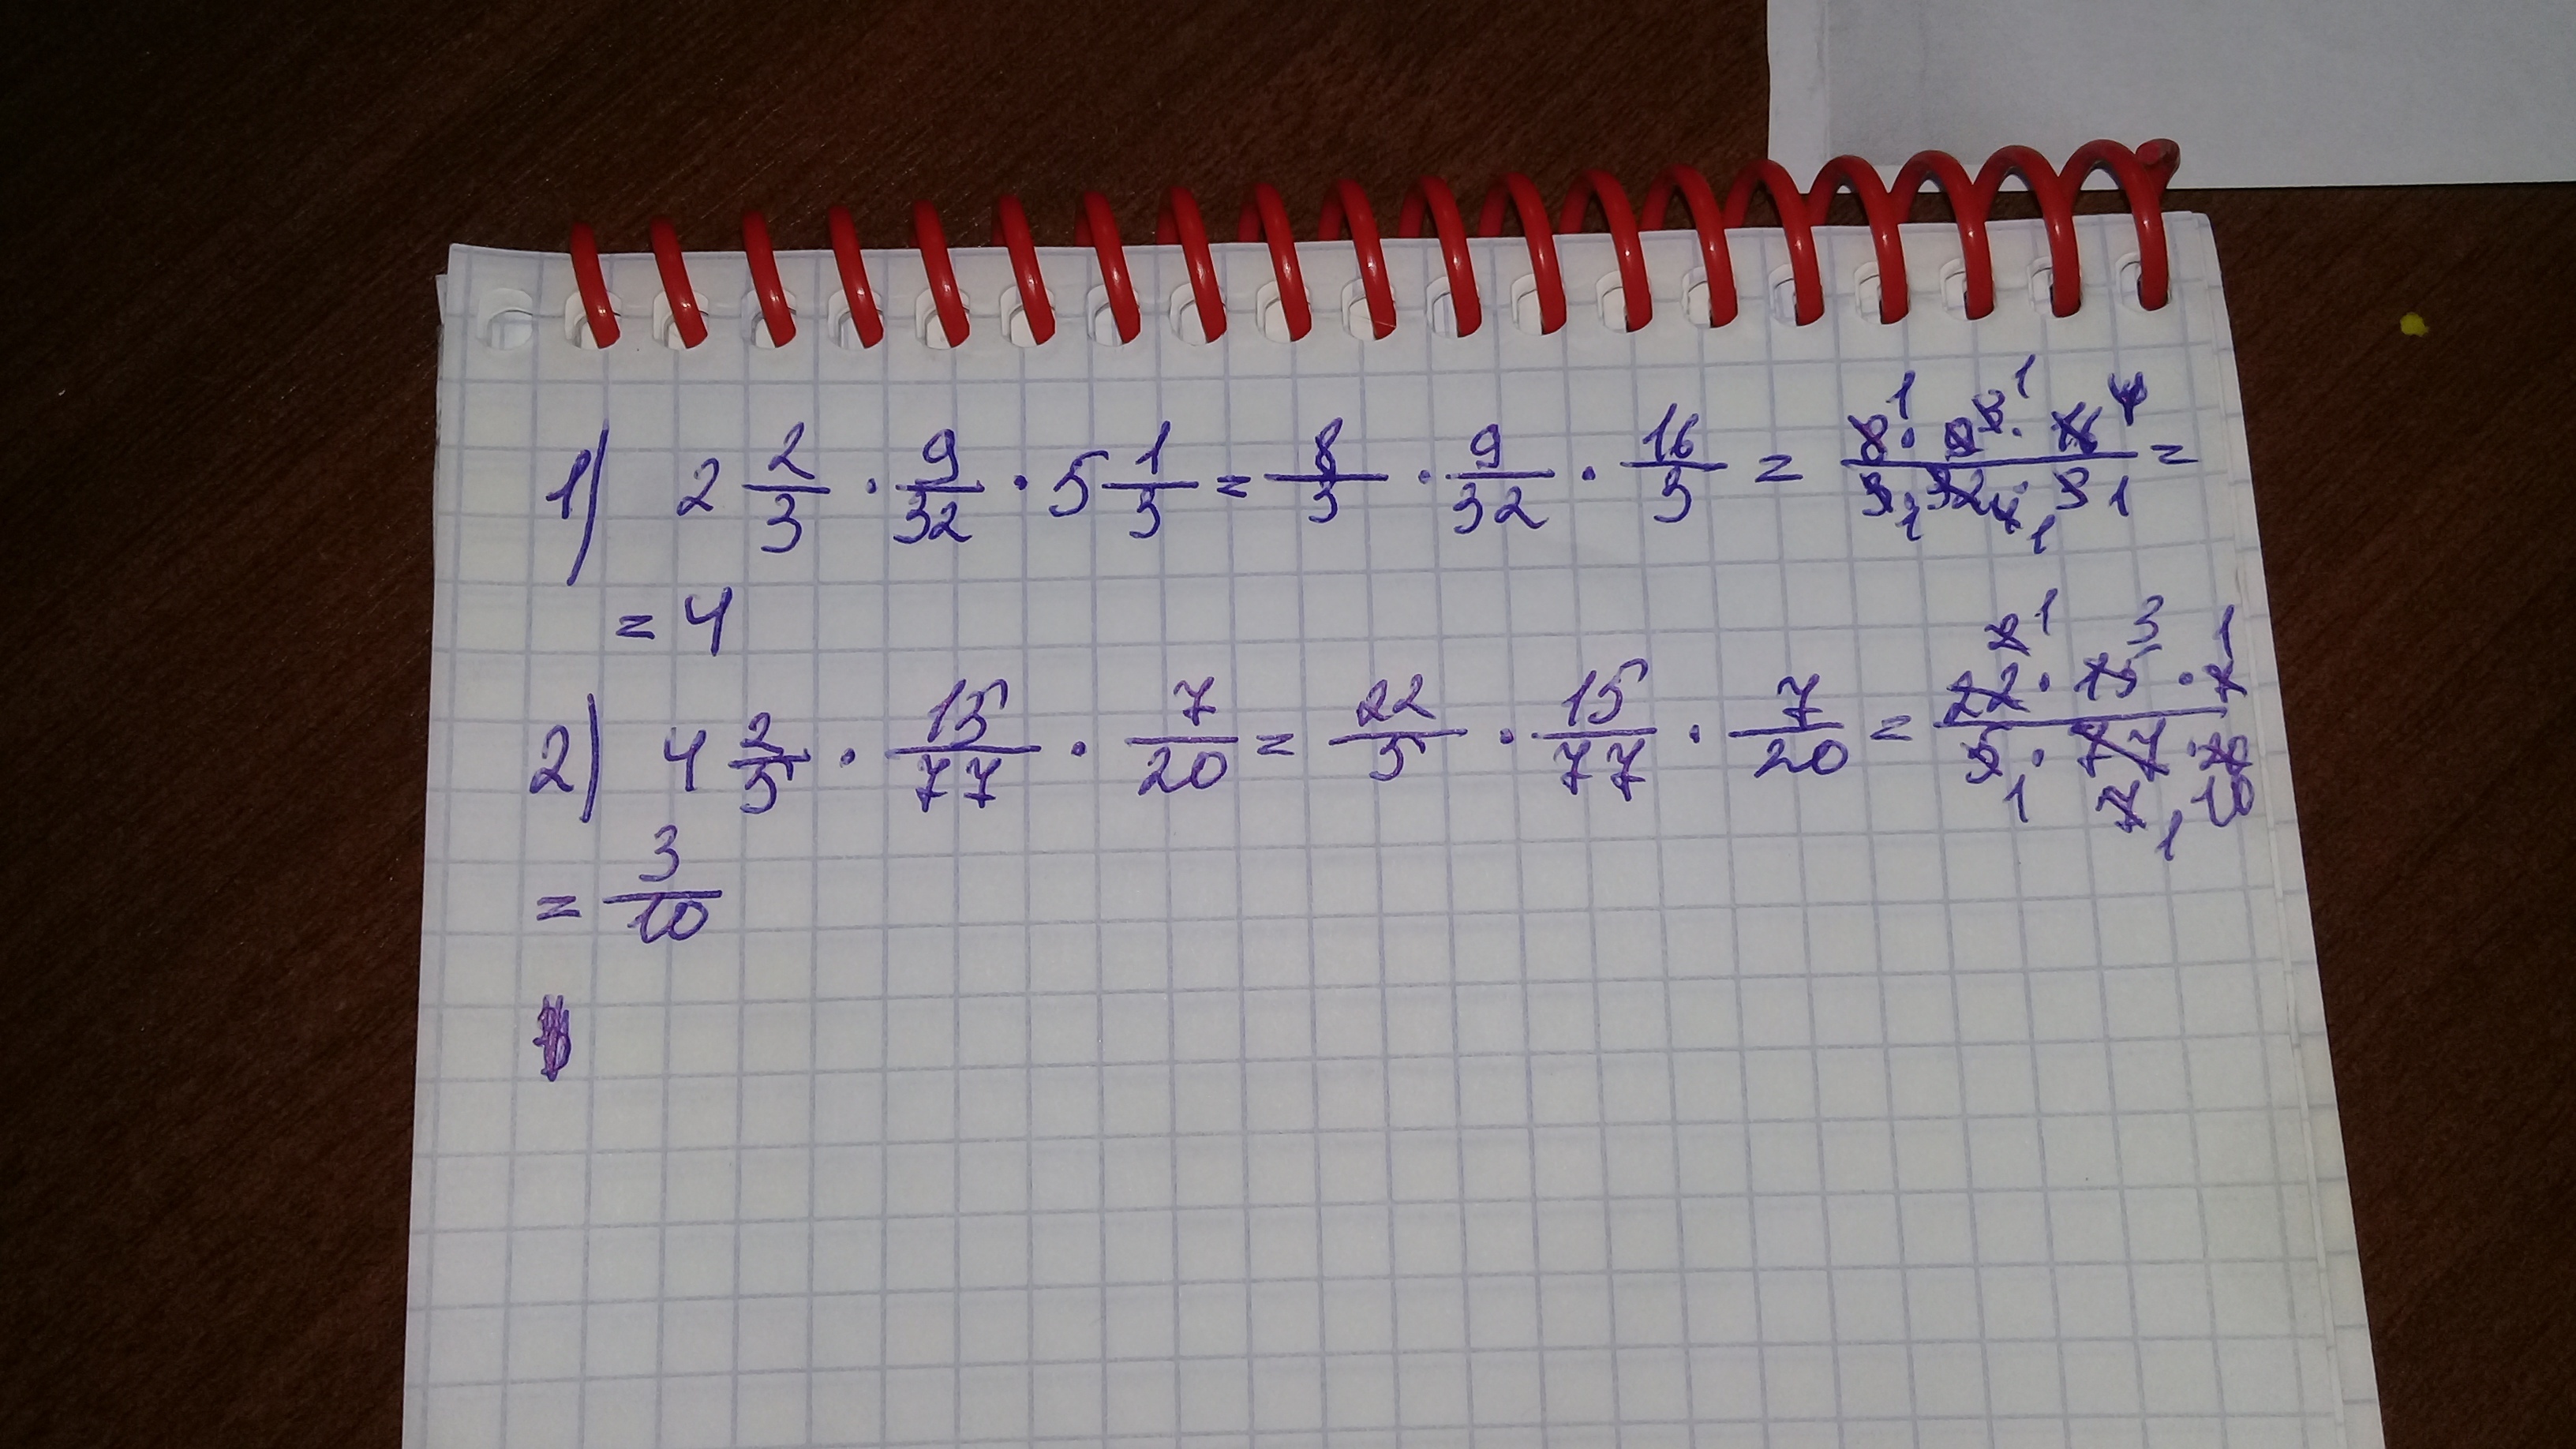 1) 2 2/3 · 9/32 · 5 1/3 = 8/3 · 9/32 · 16/3 = 8 1 · 9 3 1 · 16 4 / 3 1 · 32 4 1 · 3 1 =
= 4
2) 4 2/5 · 15/77 · 7/20 = 22/5 · 15/77 · 7/20 = 22 2 1 · 15 3 · 7 1 / 5 1 · 77 7 1 · 20 10
= 3/10